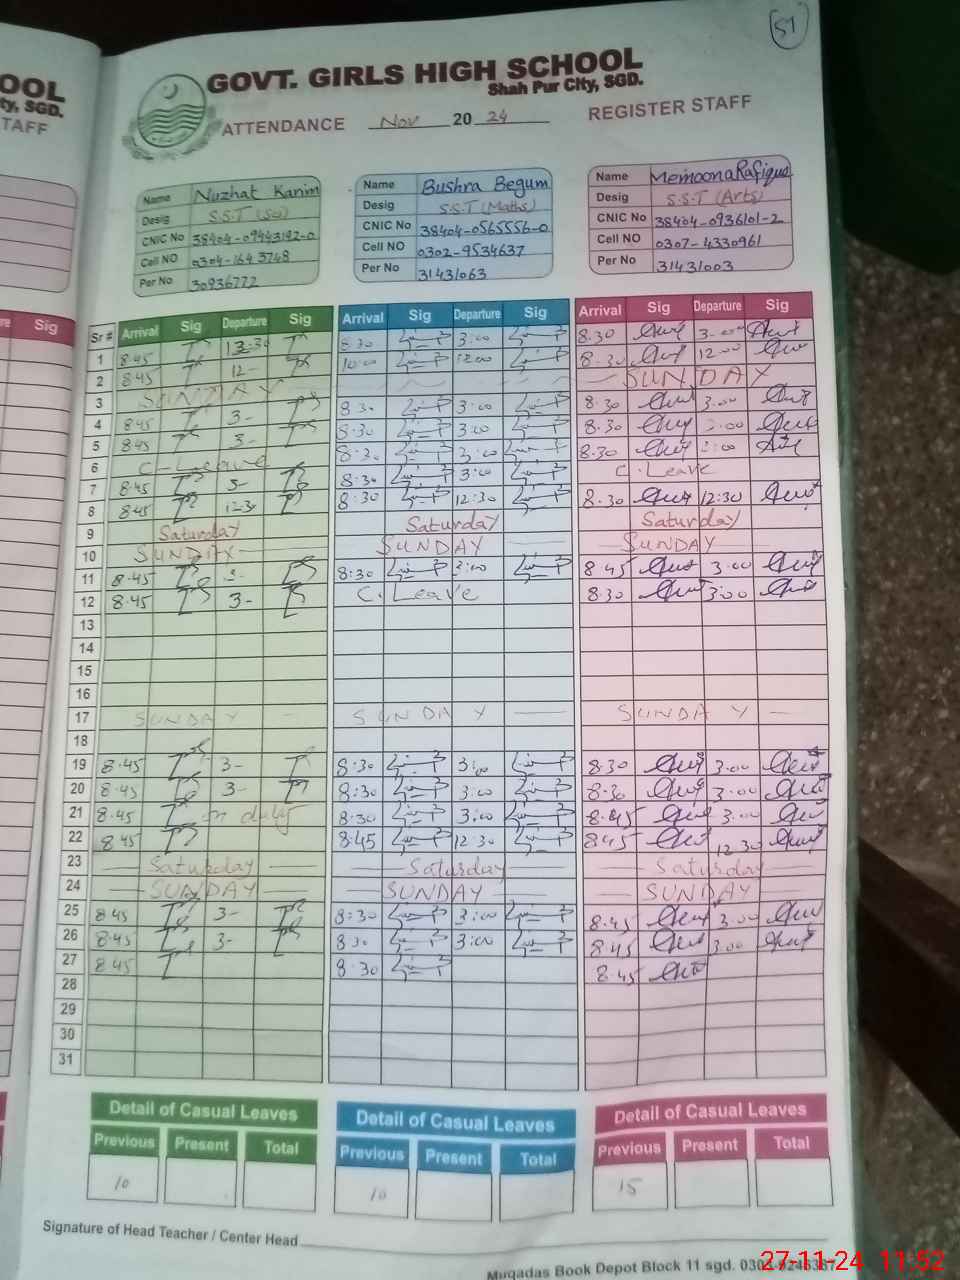 51
OOL
GOVT. GIRLS HIGH SCHOOL
ty, SGD.
Shah Pur City, SGD.
TAFF
ATTENDANCE Nov 20 24 REGISTER STAFF
Name Nuzhat Kanim
Desig S.S.T (Sci)
CNIC No 38404-09443192-0
Cell NO 0304-1643748
Per No 30936772
Name Bushra Begum
Desig S.S.T (Maths)
CNIC No 38404-0565556-0
Cell NO 0302-9534637
Per No 31431063
Name Memoona Rafique
Desig S.S.T (Arts)
CNIC No 38404-0936101-2
Cell NO 0307-4330961
Per No 31431003
re Sig
Sr # Arrival Sig Departure Sig Arrival Sig Departure Sig Arrival Sig Departure Sig
1 8.45 8:30 3:00 8.30
2 8.45 12- 10:00 12:00 8.30 12.00
3 SUNDAY SUNDAY
4 8.45 3- 8:30 3:00 8.30 3.00
5 8.45 3- 8:30 3:00 8.30
6 C-Leave 8:30 3:00 8.30
7 8.45 3- 8:30 3:00 C.Leave
8 8.45 8:30 12:30 8.30 12:30
9 Saturday Saturday Saturday
10 SUNDAY SUNDAY SUNDAY
11 8.45 3- 8:30 8.45 3.00
12 8.45 3- C.Leave 8.30 3:00
13
14
15
16
17 SUNDAY SUNDAY SUNDAY
18
19 8.45 3- 8:30 3:00 8.30 3.00
20 8.45 3- 8:30 3:00 8.30 3.00
21 8.45 on duty 8:30 3:00 8.45 3.00
22 8.45 8:45 12:30 8.45 12.30
23 Saturday Saturday Saturday
24 SUNDAY SUNDAY SUNDAY
25 8.45 3- 8:30 3:00 8.45 3.00
26 8.45 3- 8:30 3:00 8.45 3.00
27 8.45 8:30 8.45
28
29
30
31
Detail of Casual Leaves Detail of Casual Leaves Detail of Casual Leaves
Previous Present Total Previous Present Total Previous Present Total
10 10 15
Signature of Head Teacher / Center Head
Muqadas Book Depot Block 11 sgd.
27-11-24 11:52